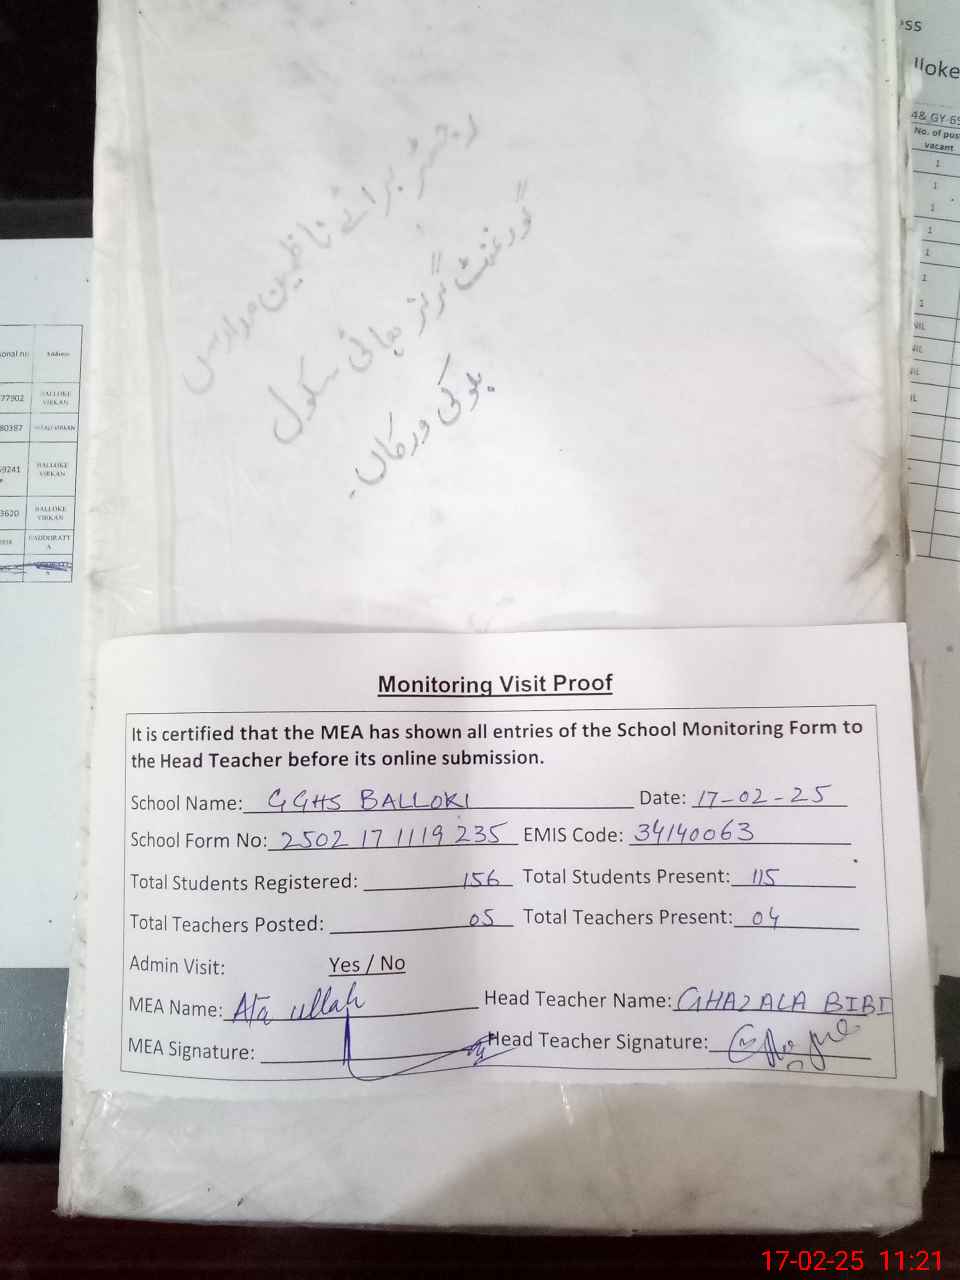 رجسٹر برائے ناظمین مدارس
گورنمنٹ گرلز ہائی سکول
بلوکی ورکاں۔
Monitoring Visit Proof
It is certified that the MEA has shown all entries of the School Monitoring Form to
the Head Teacher before its online submission.
School Name: GGHS BALLOKI Date: 17-02-25
School Form No: 2502 17 1119 235 EMIS Code: 34140063
Total Students Registered: 156 Total Students Present: 115
Total Teachers Posted: 05 Total Teachers Present: 04
Admin Visit: Yes / No
MEA Name: Ata ullah Head Teacher Name: GHAZALA BIBI
MEA Signature: Head Teacher Signature:
onal nu Address
77902 BALLOKE VIRKAN
80387
59241 BALLOKE VIRKAN
3620 BALLOKE VIRKAN
GADDORATT A
ss
lloke
4& GY-69
No. of pos
vacant
1
1
1
1
1
1
1
NIL
17-02-25 11:21